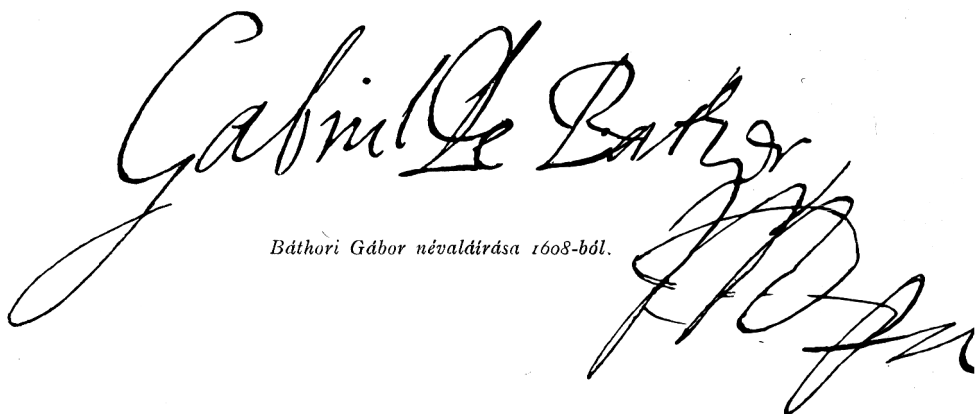 Gabriel De Bathor
Báthori Gábor névaláírása 1608-ból.